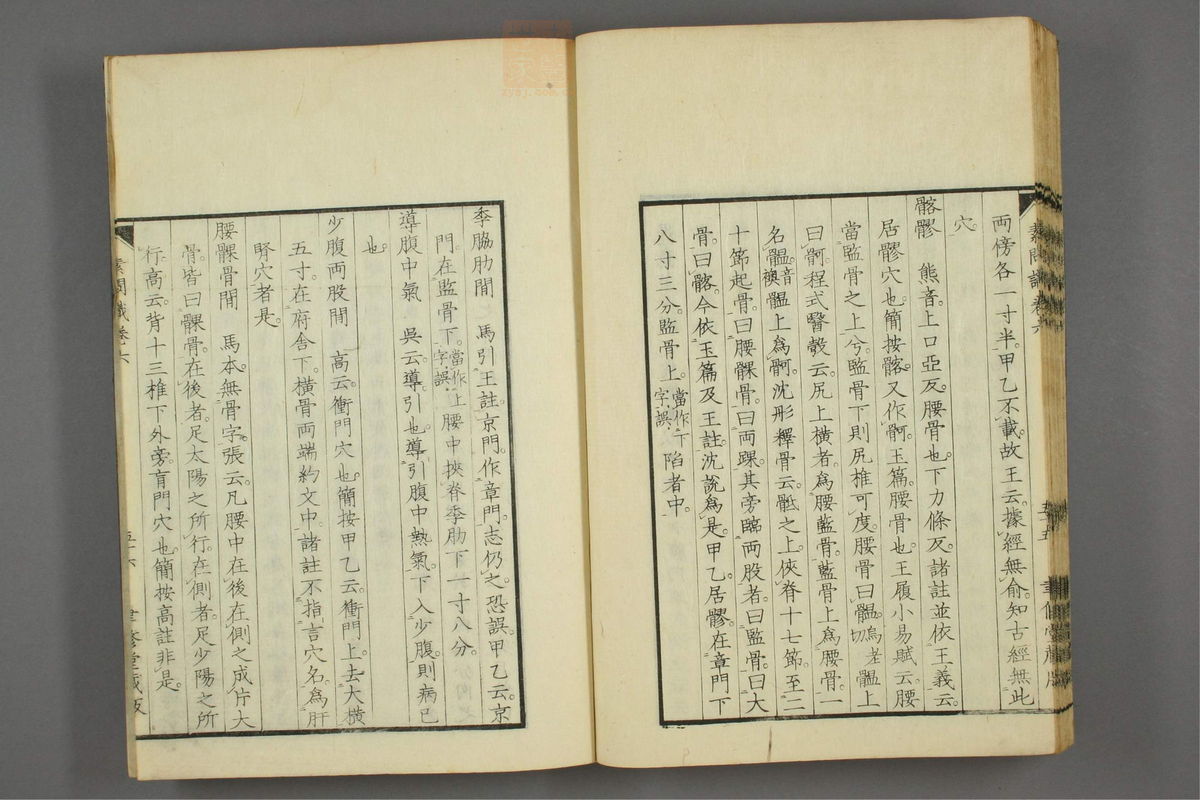 兩傍各一寸半。甲乙不載。故王云。據經無俞。知古經無此
穴。
髂髎　熊音。上口亞反。腰骨也。下力條反。諸註並依王義云。
居髎穴也。簡按髂。又作䯊。玉篇。腰骨也。王履小易賦云。腰
當監骨之上兮。監骨下則尻椎可度。腰骨曰䯠。烏老切䯠上
曰䯊。程式醫彀云。尻上橫者。爲腰藍骨。藍骨上爲腰骨。一
名䯠。音襖䯠上爲䯊。沈彤釋骨云。骶之上。俠脊十七節。至二
十節起骨。曰腰髁骨。曰兩踝。其旁臨兩股者。曰監骨。曰大
骨。曰髂。今依玉篇及王註。沈說爲是。甲乙。居髎在章門下
八寸三分。監骨上當作下字誤陷者中。
季脇肋間　馬引王註。京門。作章門。志仍之。恐誤。甲乙云。京
門。在監骨下。當作上字誤腰中挾脊季肋下一寸八分。
導腹中氣　吳云。導。引也。導引腹中熱氣。下入少腹。則病已
也。
少腹兩股間　高云。衝門穴也。簡按甲乙云。衝門。上去大橫
五寸。在府舍下。橫骨兩端約文中。諸註不指言穴名。爲肝
腎穴者是。
腰髁骨間　馬本。無骨字。張云。凡腰中在後在側之成片大
骨。皆曰髁骨。在後者。足太陽之所行。在側者。足少陽之所
行。高云。背十三椎下外旁。肓門穴也。簡按高註非是。
素問識卷六
聿修堂藏版